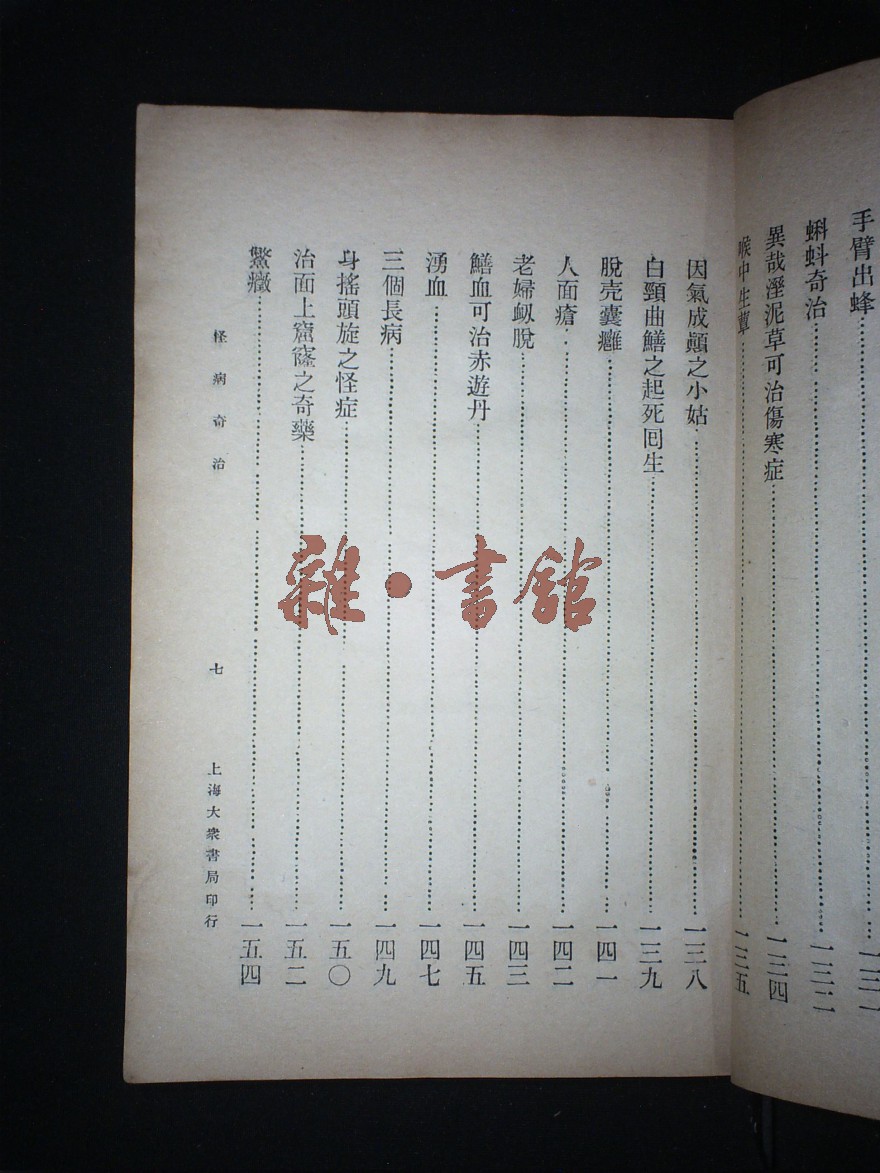 手臂出蜂……一三一
蝌蚪奇治……一三二
異哉溼泥草可治傷寒症……一三四
喉中生蕈……一三五
因氣成顚之小姑……一三八
白頸曲鱔之起死回生……一三九
脫壳囊癰……一四一
人面瘡……一四二
老婦䘐脫……一四三
鱔血可治赤遊丹……一四五
湧血……一四七
三個長病……一四九
身搖頭旋之怪症……一五〇
治面上窟窿之奇藥……一五二
鱉癥……一五四
怪病奇治
七
上海大衆書局印行
雜·書館